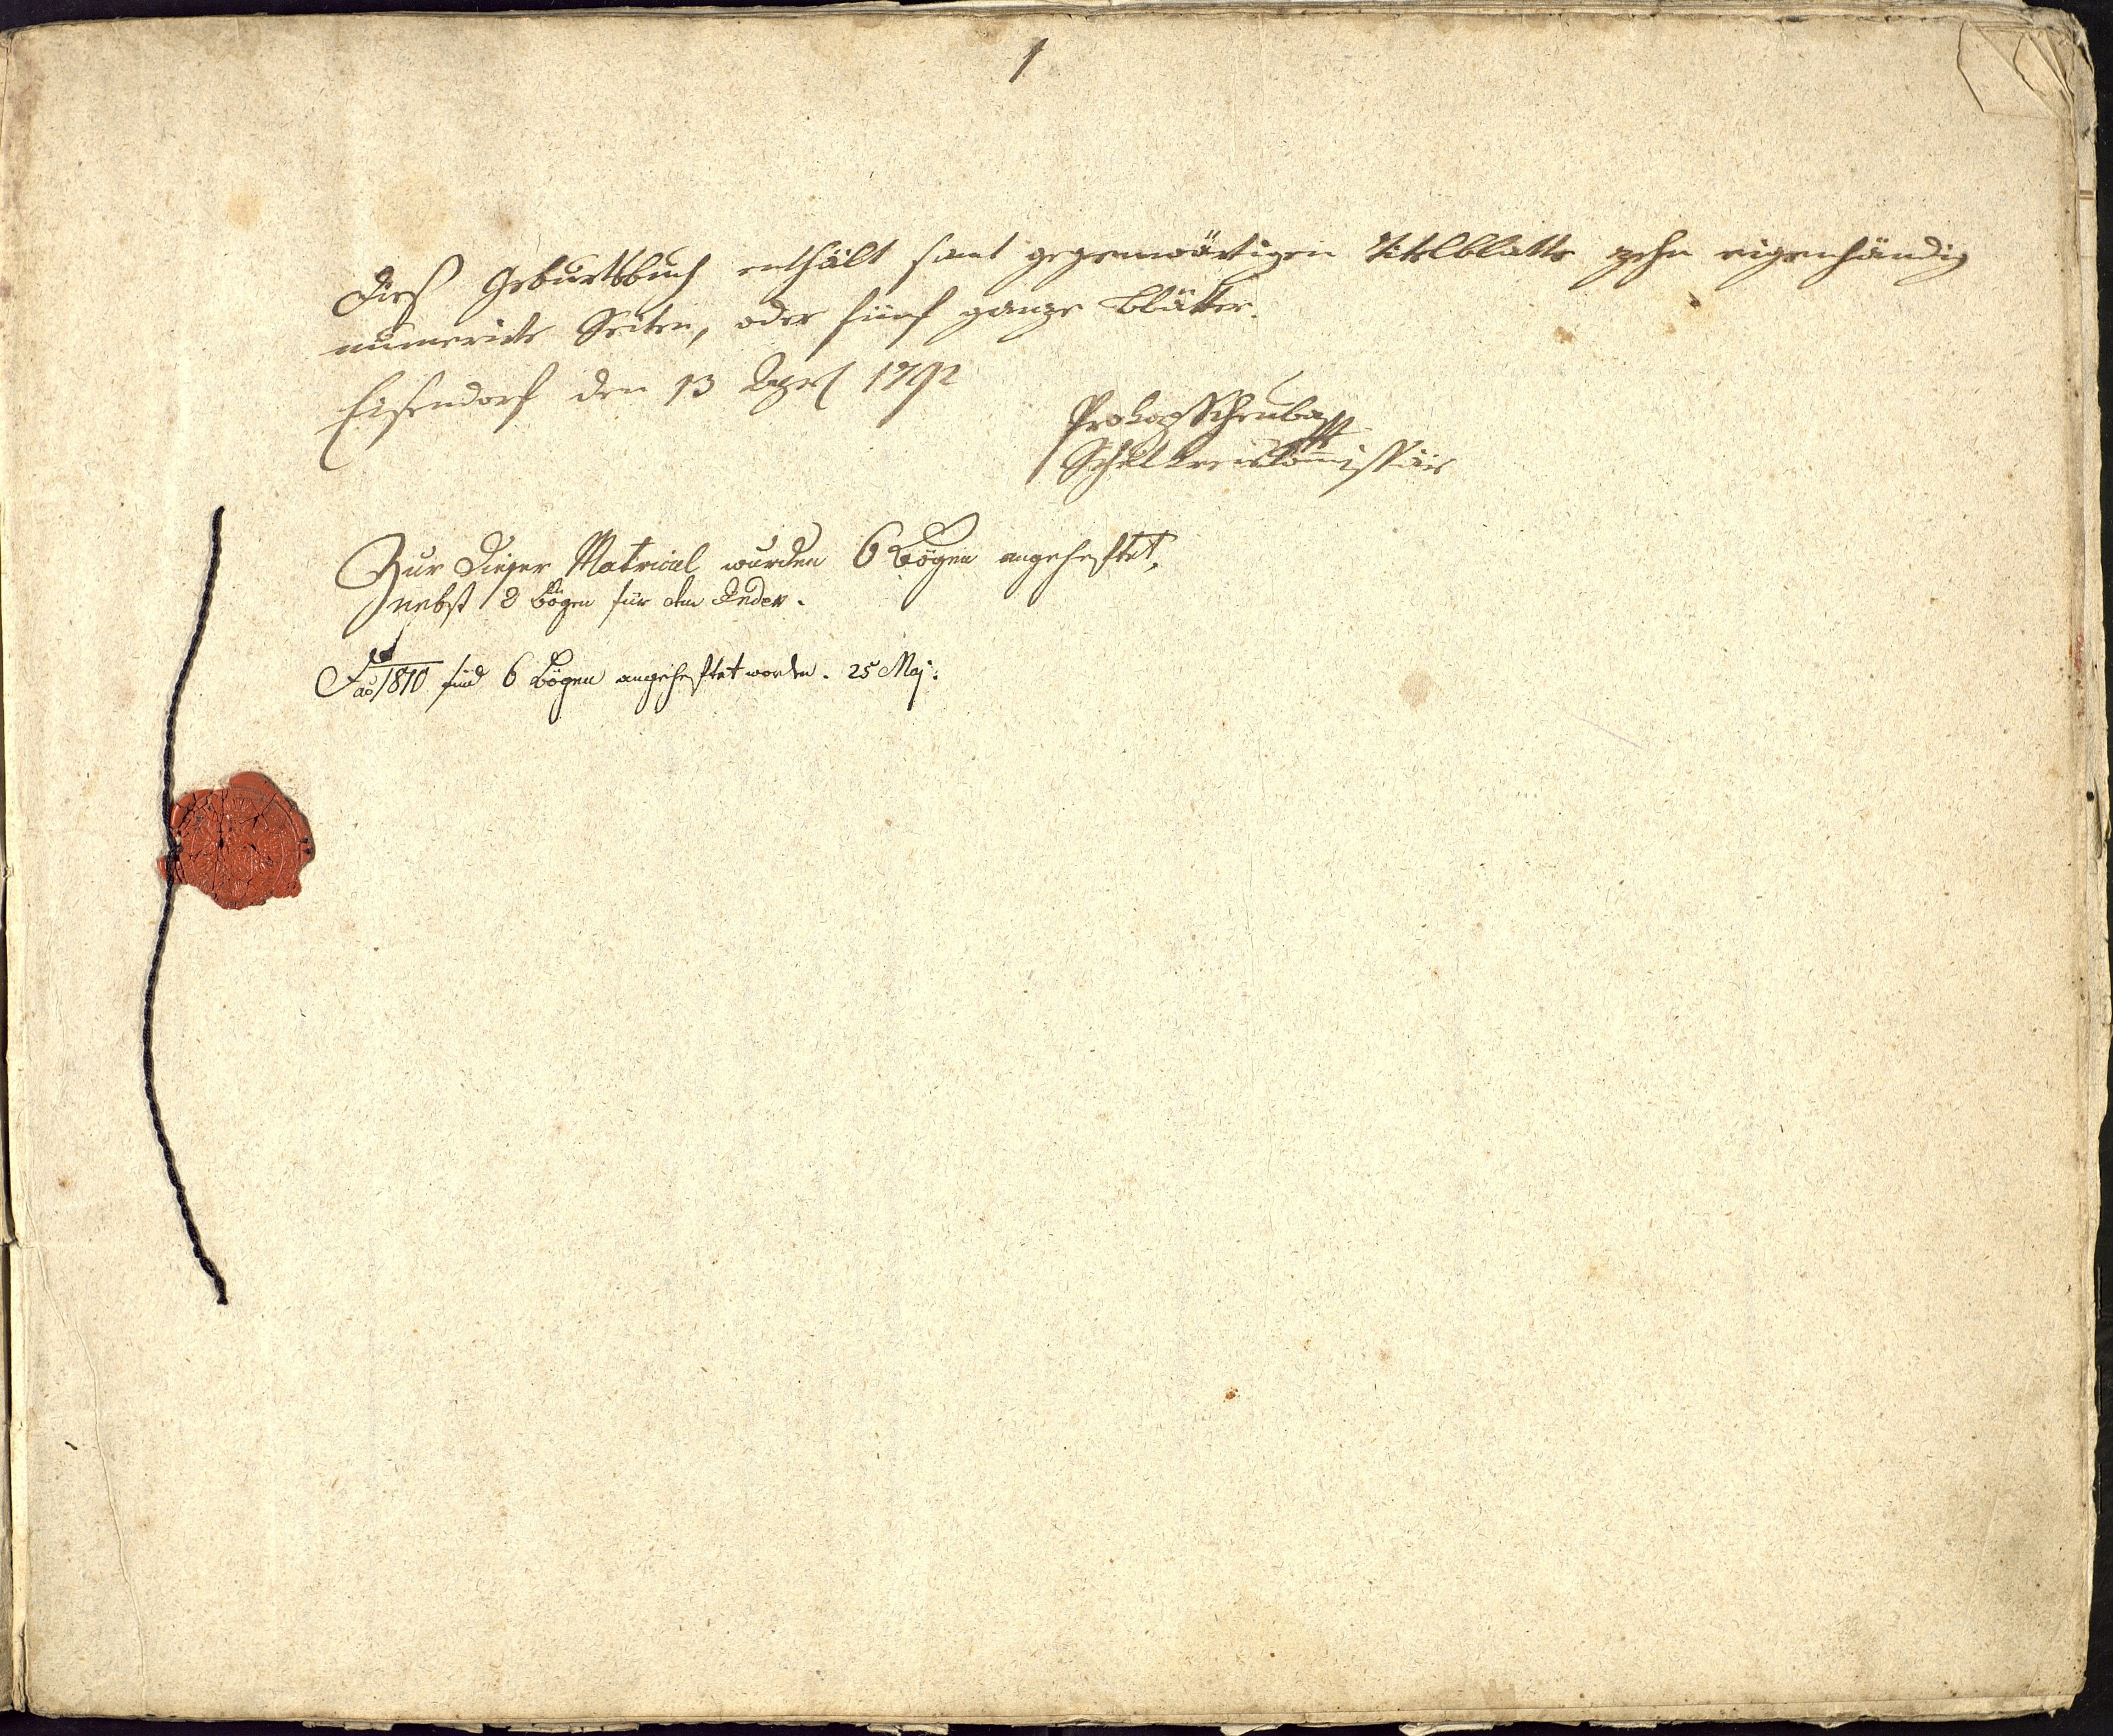 1
Dies Geburtsbuch enthält samt gegenwärtigen Titelblatte zehn eigenhändig
numerirte Seiten, oder fünf ganze Blätter.
Eisendorf den 13 1792
Prokop
Schulkreiskom̅issär
Zur Dieser Matricul wurden 6 Bögen angeheftet,
nebst 2 Bögen für den Index.
1810 sind 6 Bögen angeheftet worden. 25 Maj: